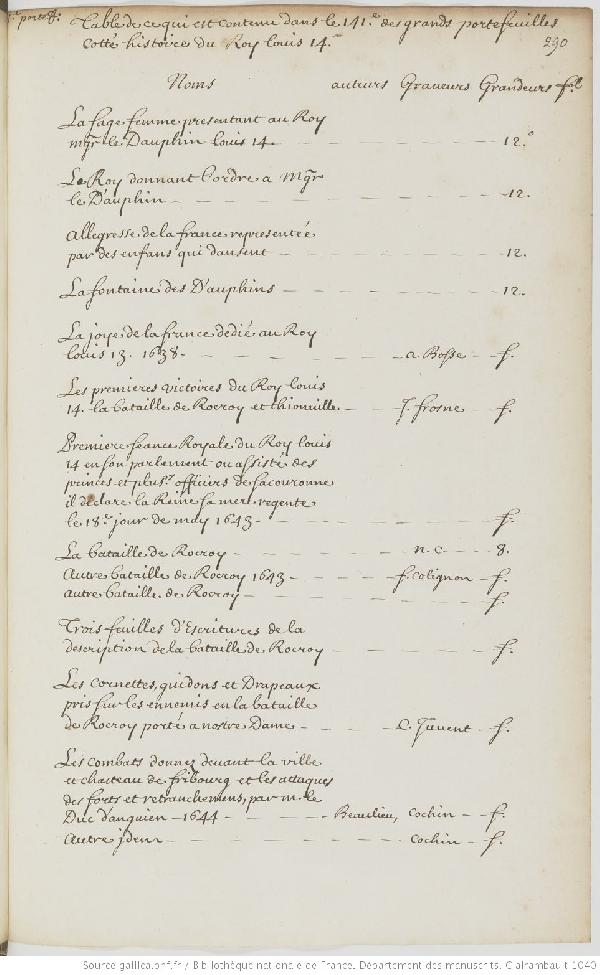 Table de ce qui est contenu dans le 141.e des grands portefeuilles
cotté histoire du Roy louis 14.
290
Noms auteurs Graveurs Grandeurs
La sage femme presentant au Roy
mgr le Dauphin louis 14 12.o
Le Roy donnant l'ordre a Mgr
le Dauphin 12.
Allegresse de la france representée
par des enfans qui dansent 12.
La fontaine des Dauphins 12.
La joye de la france dedié au Roy
louis 13. 1638. a Bosse f.
Les premieres victoires du Roy louis
14. la bataille de Rocroy et thionuille. J. frosne f.
Premiere seance Royale du Roy louis
14 en son parlement ou assisté des
princes et plusrs officiers de sa couronne
il declare la Reine sa mere regente
le 18.e jour de may 1643 f.
La bataille de Rocroy n. c. 8.
Autre bataille de Rocroy 1643 f. colignon f.
autre bataille de Rocroy f.
Trois feuilles d'Escritures de la
description de la bataille de Rocroy f.
Les Cornettes, guidons et Drapeaux
pris sur les ennemis en la bataille
de Rocroy porté a nostre Dame f.
Les combats donnez deuant la ville
et chasteau de fribourg et les attaques
des forts et retranchemens, par m. le
Duc d'anguien 1644 Beaulieu, Cochin f.
Autre jdem Cochin f.
Source gallica.bnf.fr / Bibliothèque nationale de France. Département des manuscrits. Clairambault 1040